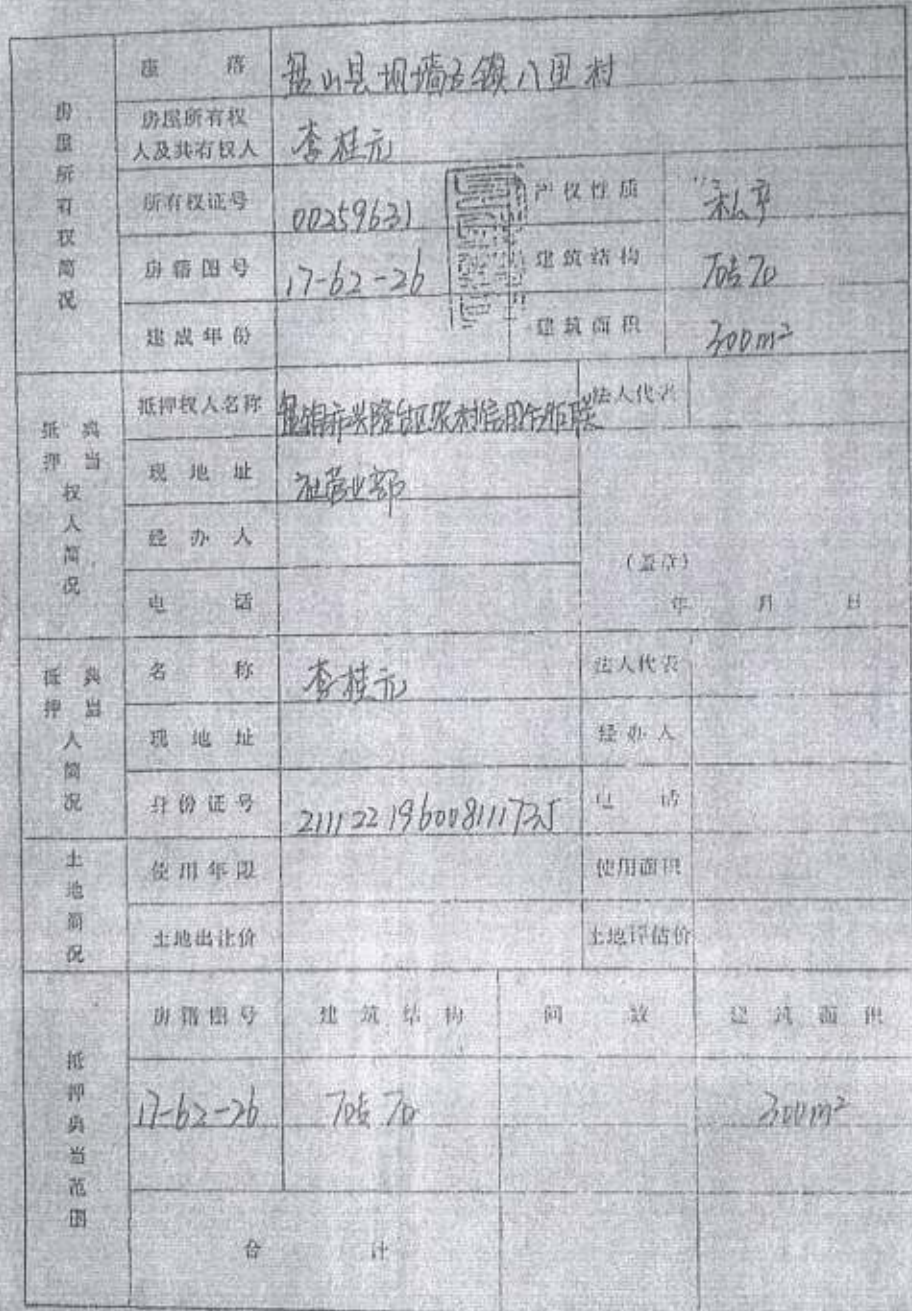 房屋所有权简况
座落 盘山县坝墙子镇八里村
房屋所有权人及共有权人 李桂元
所有权证号 00259631 产权性质 私产
房籍图号 17-62-26 建筑结构 砖石
建成年份 建筑面积 300m²
抵押典当权人简况
抵押权人名称 盘锦市兴隆台区农村信用合作联 法人代表
现地址 社营业部
经办人
(盖章)
电话 年 月 日
抵押典当人简况
名称 李桂元 法人代表
现地址 经办人
身份证号 211122196008111735 电话
土地简况
使用年限 使用面积
土地出让价 土地评估价
抵押典当范围
房籍图号 建筑结构 间数 建筑面积
17-62-26 砖石 300m²
合计